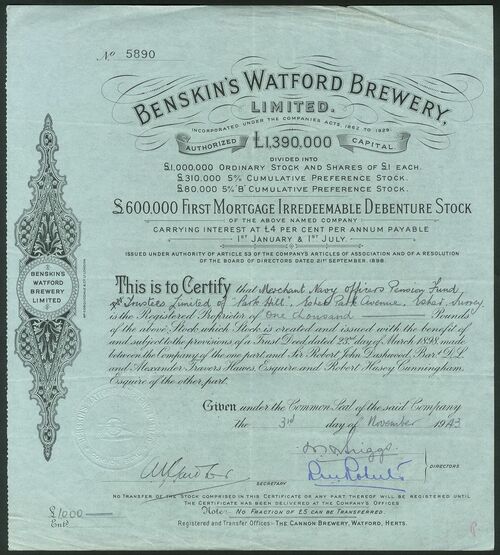 No 5890
BENSKIN'S WATFORD BREWERY,
LIMITED.
INCORPORATED UNDER THE COMPANIES ACTS, 1862 TO 1929.
AUTHORIZED £1,390,000 CAPITAL.
DIVIDED INTO
£1,000,000 ORDINARY STOCK AND SHARES OF £1 EACH.
£310,000 5% CUMULATIVE PREFERENCE STOCK.
£80,000 5% 'B' CUMULATIVE PREFERENCE STOCK.
£600,000 FIRST MORTGAGE IRREDEEMABLE DEBENTURE STOCK
OF THE ABOVE NAMED COMPANY
CARRYING INTEREST AT £4 PER CENT PER ANNUM PAYABLE
1ST JANUARY & 1ST JULY.
ISSUED UNDER AUTHORITY OF ARTICLE 53 OF THE COMPANY'S ARTICLES OF ASSOCIATION AND OF A RESOLUTION
OF THE BOARD OF DIRECTORS DATED 21ST SEPTEMBER, 1898.
BENSKIN'S
WATFORD
BREWERY
LIMITED
This is to Certify that Merchant Navy Officers Pension Fund
Trustees Limited of "Park Hill", Esher Park Avenue, Esher, Surrey
is the Registered Proprietor of One thousand Pounds
of the above Stock which Stock is created and issued with the benefit of
and subject to the provisions of a Trust Deed dated 23rd day of March 1898 made
between the Company of the one part and Sir Robert John Dashwood, Bart D.L.
and Alexander Travers Hawes, Esquire and Robert Hussey Cunningham,
Esquire of the other part.
Given under the Common Seal of the said Company
the 3rd day of November 1943
DIRECTORS
SECRETARY
£1000
Entd
NO TRANSFER OF THE STOCK COMPRISED IN THIS CERTIFICATE OR ANY PART THEREOF WILL BE REGISTERED UNTIL
THE CERTIFICATE HAS BEEN DELIVERED AT THE COMPANY'S OFFICES
Note:- NO FRACTION OF £5 CAN BE TRANSFERRED.
Registered and Transfer Offices - THE CANNON BREWERY, WATFORD, HERTS.